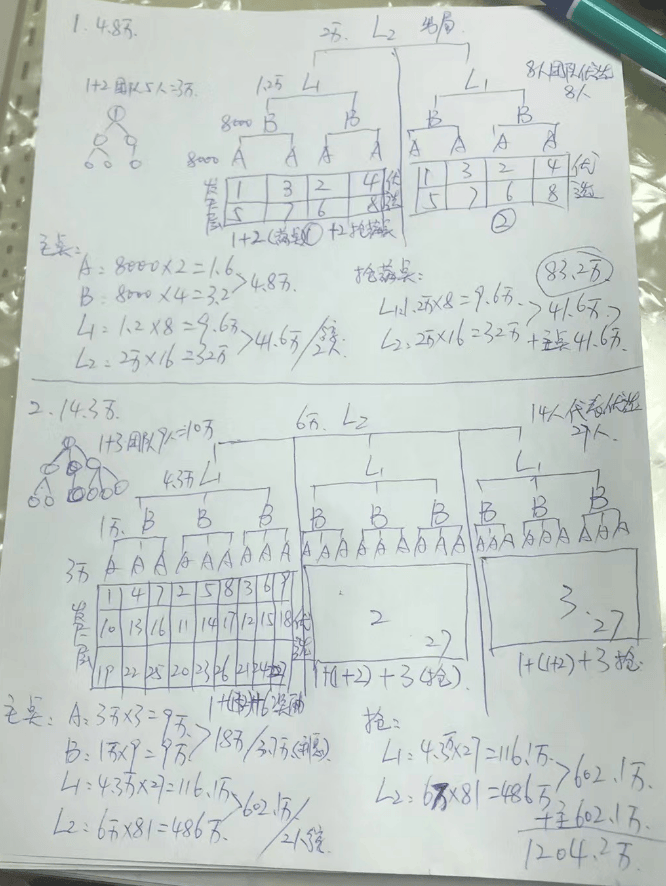 1. 4.8万
2万 L2 出局
1+2团队5人=3万
1
1.2万 L1
L1
8人团队优选
8人
8000 B B
B B
8000 A A A A
A A A A
发展层
1 3 2 4
5 7 6 8
优选
1 3 2 4
5 7 6 8
优选
1+2(落点)① +2抢落点
②
主点:
A: 8000×2=1.6
B: 8000×4=3.2
4.8万
L1=1.2×8=9.6万
L2=2万×16=32万
41.6万/
抢落点:
83.2万
L1:1.2万×8=9.6万
L2:2万×16=32万
41.6万
+主点41.6万
2. 14.3万
1+3团队9人=10万
6万 L2
14人代表优选
27人
4.3万 L1
L1
L1
1万 B B B
B B B
B B B
3万 A A A A A A A A A
A A A A A A A A A
A A A A A A A A A
发展层
1 4 7 2 5 8 3 6 9
10 13 16 11 14 17 12 15 18
19 22 25 20 23 26 21 24 27
优选
2
27
3.
27
1+(1+2)+3(抢)
1+(1+2)+3抢
主点: A:3万×3=9万
B:1万×9=9万
18万/3.7万
L1=4.3万×27=116.1万
L2=6万×81=486万
602.1万
抢:
L1:4.3万×27=116.1万
L2:6万×81=486万
602.1万
+主602.1万
1204.2万